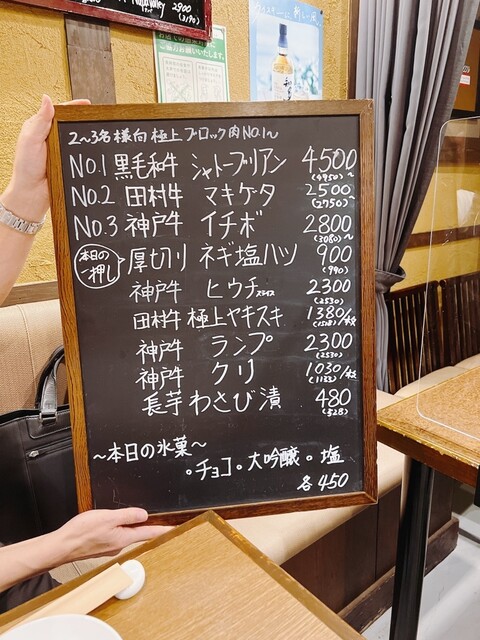 2900
(3190)
2〜3名様向 極上ブロック肉NO.1〜
NO.1 黒毛和牛 シャトーブリアン 4500〜
(4950)
NO.2 田村牛 マキケタ 2500〜
(2750)
NO.3 神戸牛 イチボ 2800〜
(3080)
本日の一押し 厚切り ネギ塩ハツ 900
(990)
神戸牛 ヒウチスライス 2300
(2530)
田村牛 極上ヤキスキ 1380/枚
(1518)
神戸牛 ランプ 2300
(2530)
神戸牛 クリ 1030/枚
(1133)
長芋わさび漬 480
(528)
〜本日の氷菓〜
・チョコ・大吟醸・塩
各450